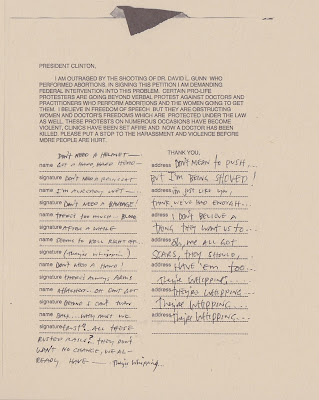 PRESIDENT CLINTON,
I AM OUTRAGED BY THE SHOOTING OF DR. DAVID L. GUNN WHO
PERFORMED ABORTIONS. IN SIGNING THIS PETITION I AM DEMANDING
FEDERAL INTERVENTION INTO THIS PROBLEM. CERTAIN PRO-LIFE
PROTESTERS ARE GOING BEYOND VERBAL PROTEST AGAINST DOCTORS AND
PRACTITIONERS WHO PERFORM ABORTIONS AND THE WOMEN GOING TO GET
THEM. I BELIEVE IN FREEDOM OF SPEECH BUT THEY ARE OBSTRUCTING
WOMEN AND DOCTOR'S FREEDOMS WHICH ARE PROTECTED UNDER THE LAW
AS WELL. THESE PROTESTS ON NUMEROUS OCCASIONS HAVE BECOME
VIOLENT, CLINICS HAVE SET AFIRE AND NOW A DOCTOR HAS BEEN
KILLED. PLEASE PUT A STOP TO THE HARASSMENT AND VIOLENCE BEFORE
MORE PEOPLE ARE HURT.
THANK YOU,
DON'T NEED A HELMET -
name GOT A HARD, HARD HEAD -
signature DON'T NEED A RAINCOAT
name I'M ALREADY WET -
signature DON'T NEED A BANDAGE!
name THERE'S TOO MUCH BLOOD
signature AFTER A WHILE
name SEEMS TO ROLL RIGHT OFF...
signature (They're whippin')
name DON'T NEED A HAND!
signature THERE'S ALWAYS ARMS
name ATTACHED... OR DON'T GET
signature BEHIND I CAN'T TURN
name BACK... WHY MUST WE
signature TRUST?.. ALL THESE
RUSTED RAILS? THEY DON'T
WANT NO CHANGE, WE AL-
READY HAVE - They're Whipping
address DON'T MEAN TO PUSH...
address BUT I'M BEING SHOVED!
address I'm JUST LIKE YOU,
THINK WE'VE HAD ENOUGH...
address I DON'T BELIEVE A
address THING THEY WANT US TO...
address oh, we ALL GOT
SCARS, THEY SHOULD,
address HAVE 'EM TOO...
address They're WHIPPING...
address They're WHIPPING...
address They're WHIPPING...
address They're WHIPPING...